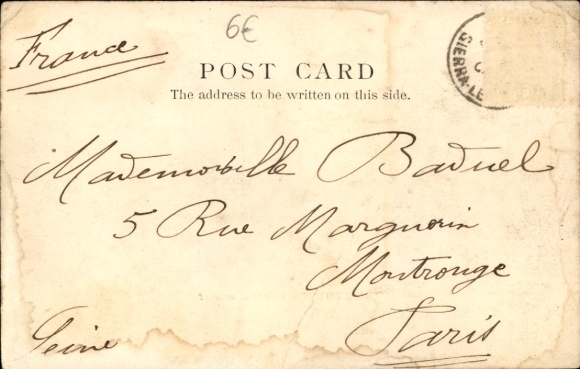 6€
France
POST CARD
The address to be written on this side.
SIERRA-LE
Mademoiselle Baduel
5 Rue Marguerin
Montrouge
Paris
Seine